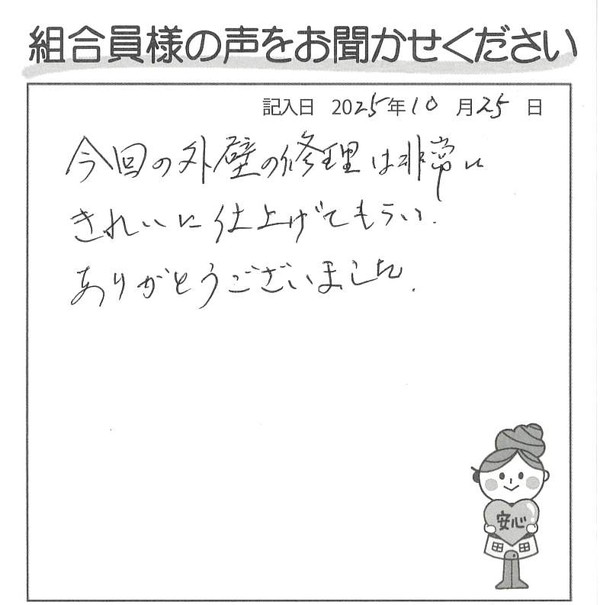 組合員様の声をお聞かせください
記入日 2025年10月25日
今回の外壁の修理は非常に
きれいに仕上げてもらい.
ありがとうございました.
安心